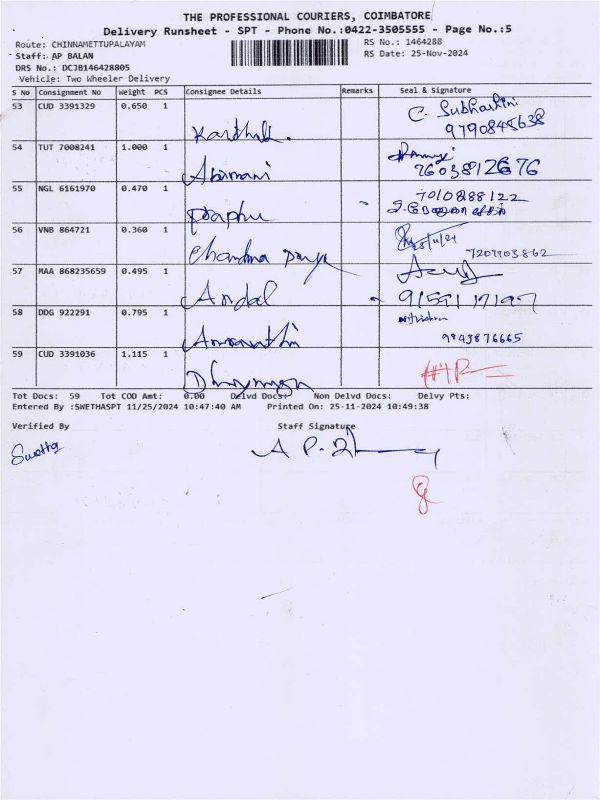 THE PROFESSIONAL COURIERS, COIMBATORE
Delivery Runsheet - SPT - Phone No.:0422-3505555 - Page No.:5
Route: CHINNAMETTUPALAYAM
RS No.: 1464288
Staff: AP BALAN
RS Date: 25-Nov-2024
DRS No.: DCJB146428805
Vehicle: Two Wheeler Delivery
S No Consignment No Weight PCS Consignee Details Remarks Seal & Signature
53 CUD 3391329 0.650 1
C. Subhashini
9790848638
54 TUT 7008241 1.000 1
7603812676
Abirami
55 NGL 6161970 0.470 1
7010888122
56 VNB 864721 0.360 1
Chandra
7207703862
57 MAA 868235659 0.495 1
Andal
58 DDG 922291 0.795 1
9843876665
59 CUD 3391036 1.115 1
Tot Docs: 59 Tot COD Amt: 0.00 Delvd Docs: Non Delvd Docs: Delvy Pts:
Entered By :SWETHASPT 11/25/2024 10:47:40 AM Printed On: 25-11-2024 10:49:38
Verified By Staff Signature
Swetha